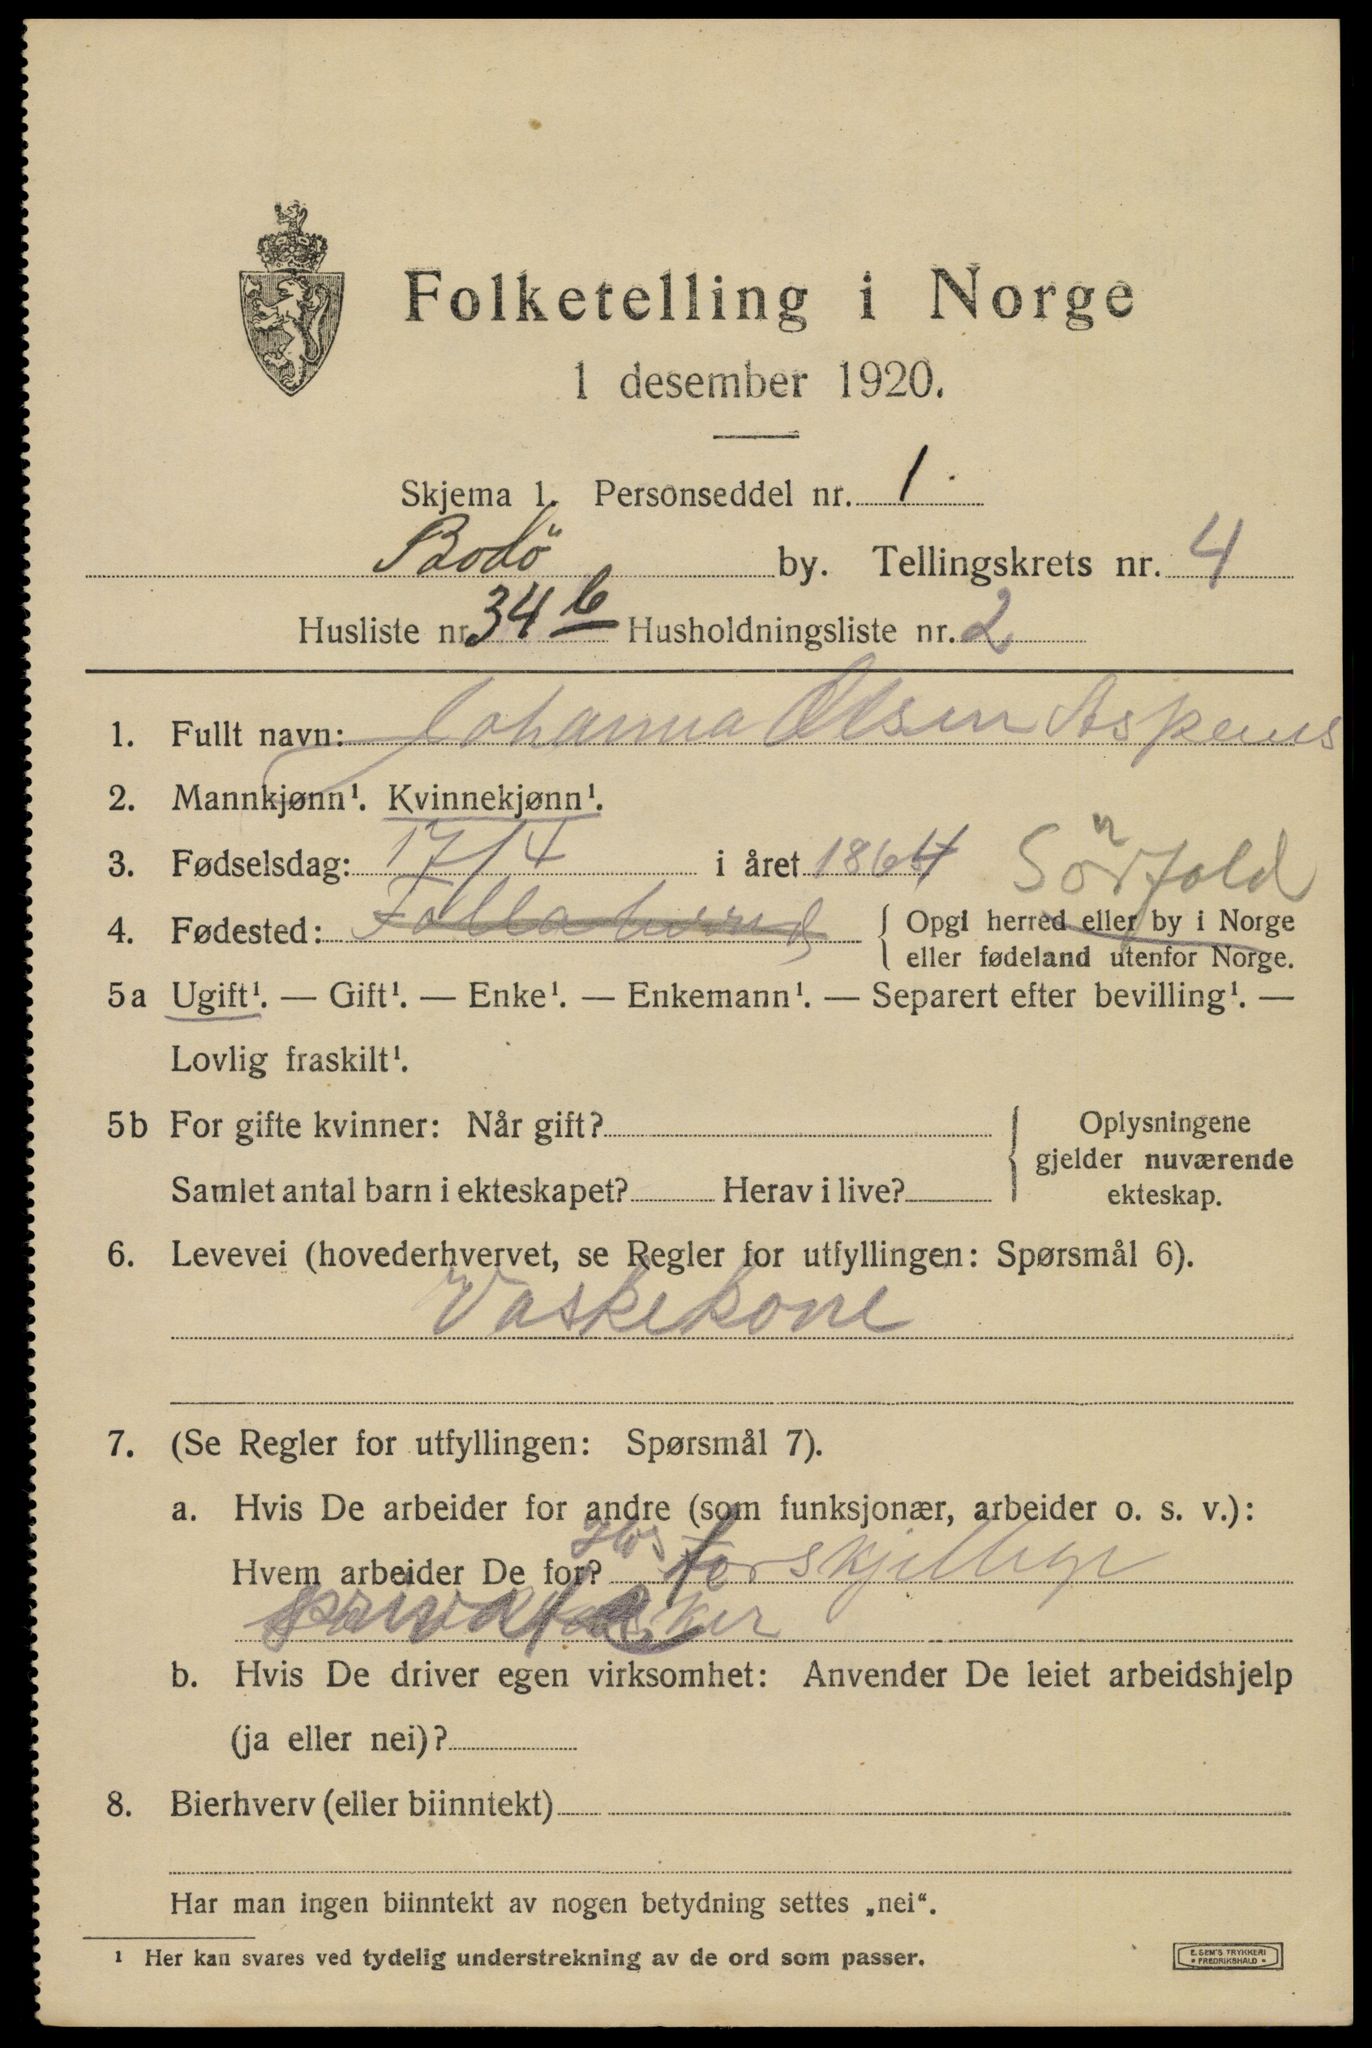 Folketelling i Norge
1 desember 1920.
Skjema 1. Personseddel nr. 1.
Bodö by. Tellingskrets nr. 4
Husliste nr. 34 b Husholdningsliste nr. 2
1. Fullt navn: Johanna Olsen Aspenes
2. Mannkjønn¹. Kvinnekjønn¹.
3. Fødselsdag: 17/4 i året 1864 Sörfold
4. Fødested: Folla { Opgi herred eller by i Norge
eller fødeland utenfor Norge.
5a Ugift¹. — Gift¹. — Enke¹. — Enkemann¹. — Separert efter bevilling¹. —
Lovlig fraskilt¹.
5b For gifte kvinner: Når gift? { Oplysningene
gjelder nuværende
Samlet antal barn i ekteskapet? Herav i live? ekteskap.
6. Levevei (hovederhvervet, se Regler for utfyllingen: Spørsmål 6).
Vaskekone
7. (Se Regler for utfyllingen: Spørsmål 7).
a. Hvis De arbeider for andre (som funksjonær, arbeider o. s. v.):
Hvem arbeider De for? Hos forskjellige
private
b. Hvis De driver egen virksomhet: Anvender De leiet arbeidshjelp
(ja eller nei)?
8. Bierhverv (eller biinntekt)
Har man ingen biinntekt av nogen betydning settes „nei“.
¹ Her kan svares ved tydelig understrekning av de ord som passer.
E. SEM'S TRYKKERI
• FREDRIKSHALD •